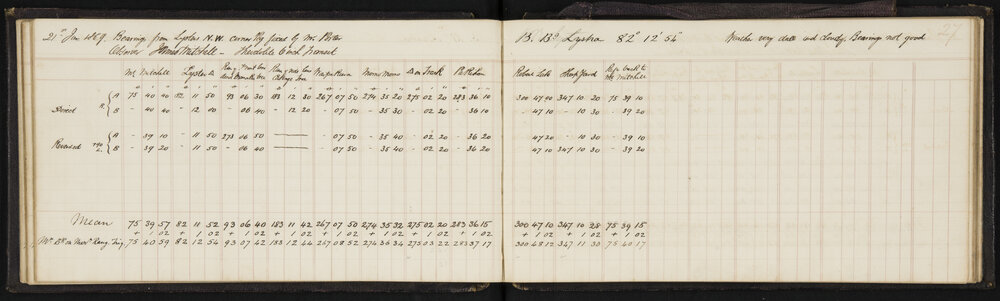 21st Jan 1869. Bearings from Lyster's N.W. corner Peg fixed by Mr. Porter B. Bg Lystra 82° 12' 54" Weather very dull and cloudy, Bearings not good 27
Observer Thomas Mitchell - Theodolite 6 inch Transit
Mt. Mitchell Lyster's Δ Waipa Rua Momo Momo Dun Track Pa Rakau Robins Lake Sheep Yard Rept. back to Mt. Mitchell
Direct R. { A 75 40 40 82 11 50 93 06 30 183 12 30 267 07 50 274 35 20 275 02 20 283 36 10 300 47 90 347 10 20 75 39 10
B - 40 40 - 12 00 - 06 40 - 12 20 - 07 50 - 35 30 - 02 20 - 36 10 - 47 10 - 10 30 - 39 20
Reversed { A - 39 10 - 11 50 273 06 50 - 07 50 - 35 40 - 02 20 - 36 20 47 20 - 10 30 - 39 10
B - 39 20 - 11 50 - 06 40 - 07 50 - 35 40 - 02 20 - 36 20 47 10 347 10 30 - 39 20
Mean 75 39 57 82 11 52 93 06 40 183 11 42 267 07 50 274 35 32 275 02 20 283 36 15 300 47 10 347 10 28 75 39 15
+ 1 02 + 1 02 + 1 02 + 1 02 + 1 02 + 1 02 + 1 02 + 1 02 + 1 02 + 1 02 + 1 02
75 40 59 82 12 54 93 07 42 183 12 44 267 08 52 274 36 34 275 03 22 283 37 17 300 48 12 347 11 30 75 40 17